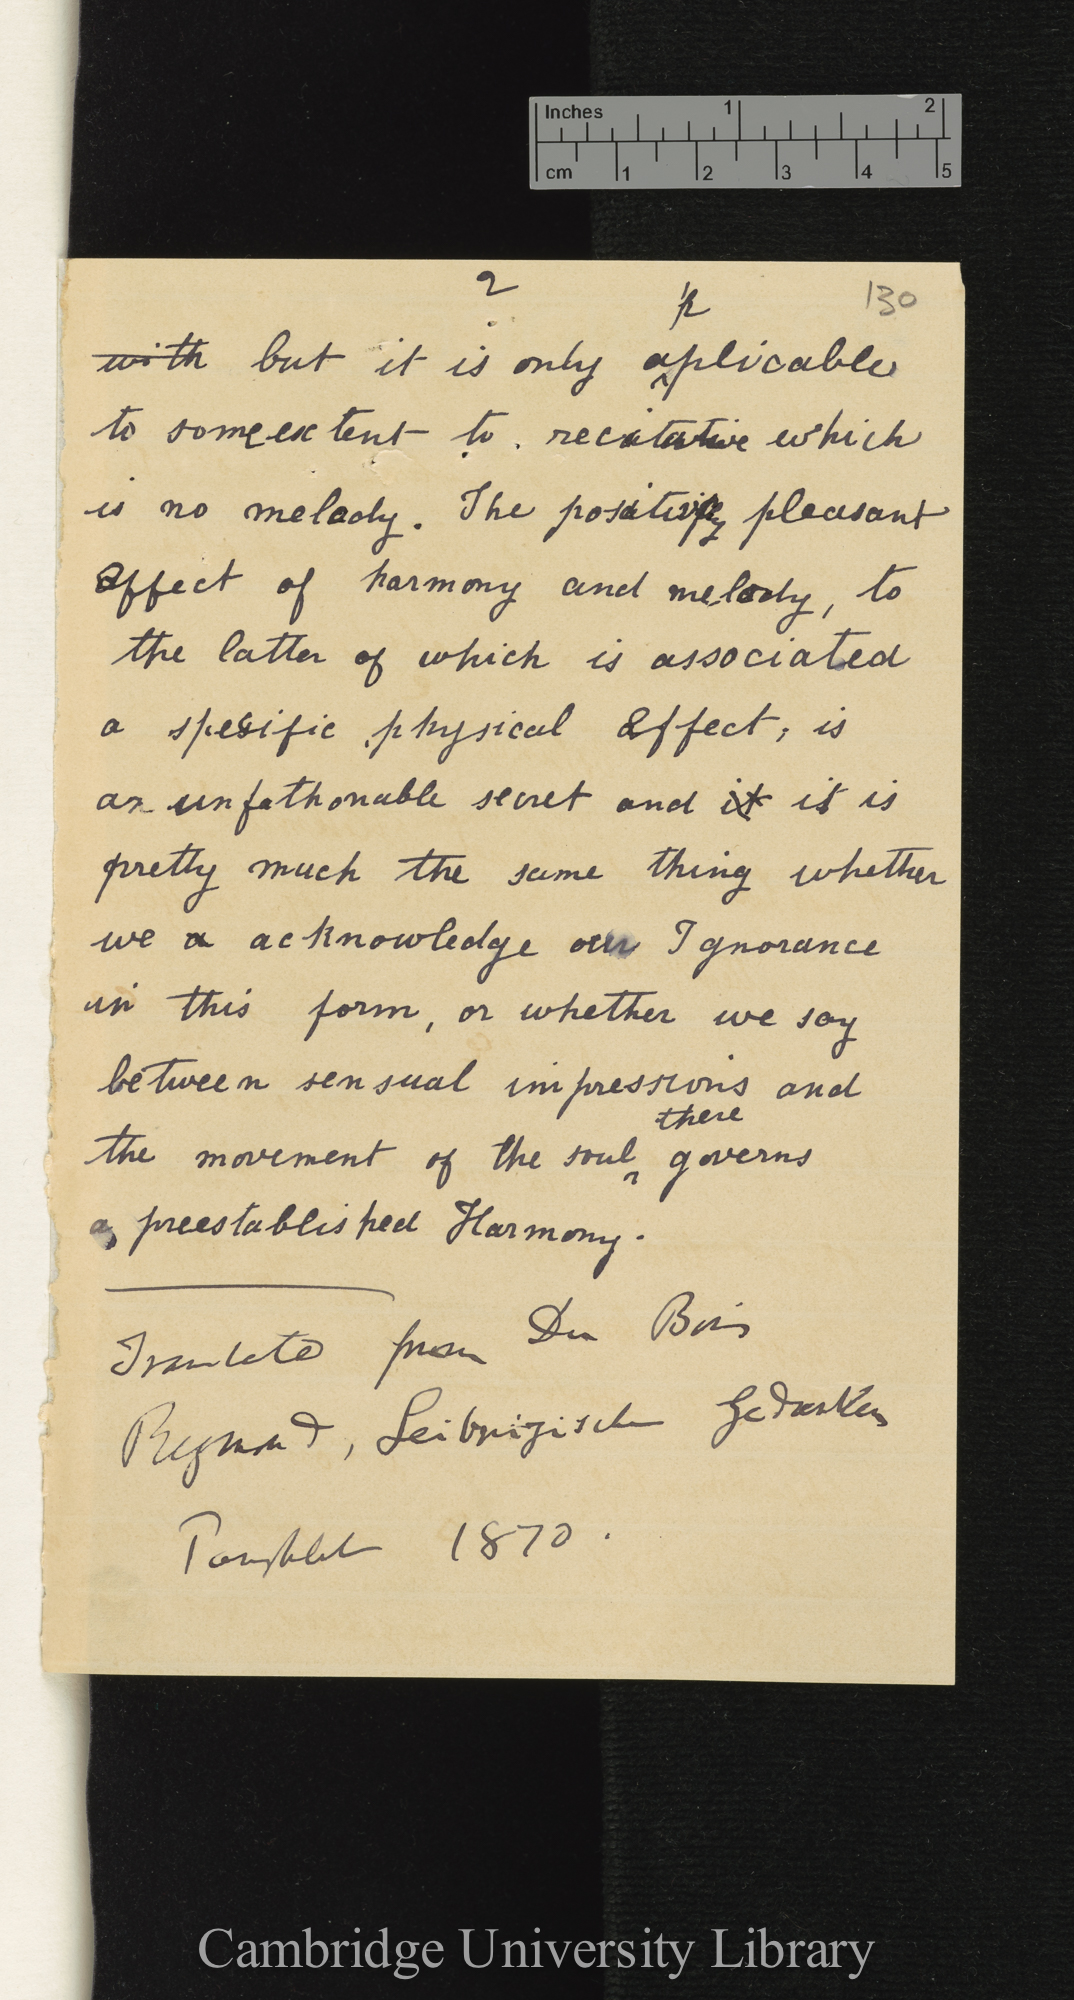 Inches 1 2
cm 1 2 3 4 5
2
130
p
with but it is only aplicable
to some extent to recitative which
is no melody. The positively pleasant
effect of harmony and melody, to
the latter of which is associated
a spesific physical effect, is
an unfathonable secret and it it is
pretty much the same thing whether
we a acknowledge our Ignorance
in this form, or whether we say
between sensual impressions and
there
the movement of the soul governs
a preestablished Harmony.
Translated from Du Bois
Reymond, Leibnizische Gedanken
Pamphlet 1870.
Cambridge University Library